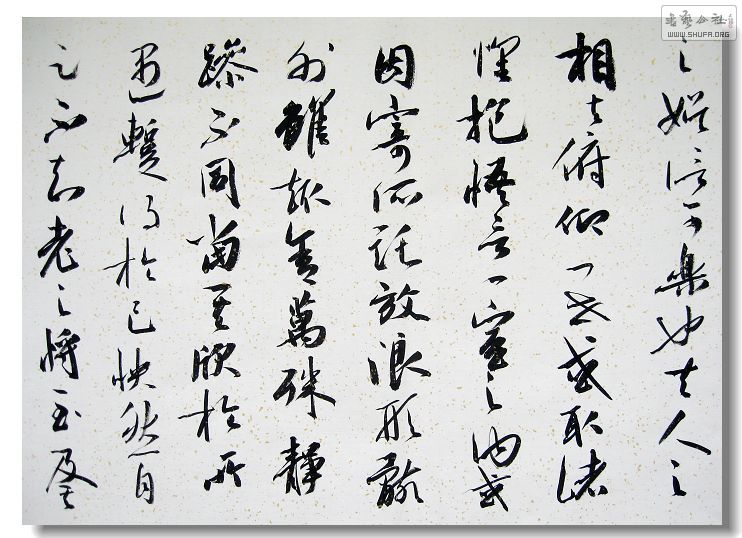 之娛信可樂也夫人之
相與俯仰一世或取諸
懷抱悟言一室之內或
因寄所託放浪形骸
外雖趣舍萬殊靜
躁不同當其欣於所
遇暫得於己快然自
足不知老之將至及其
书艺公社
WWW.SHUFA.ORG